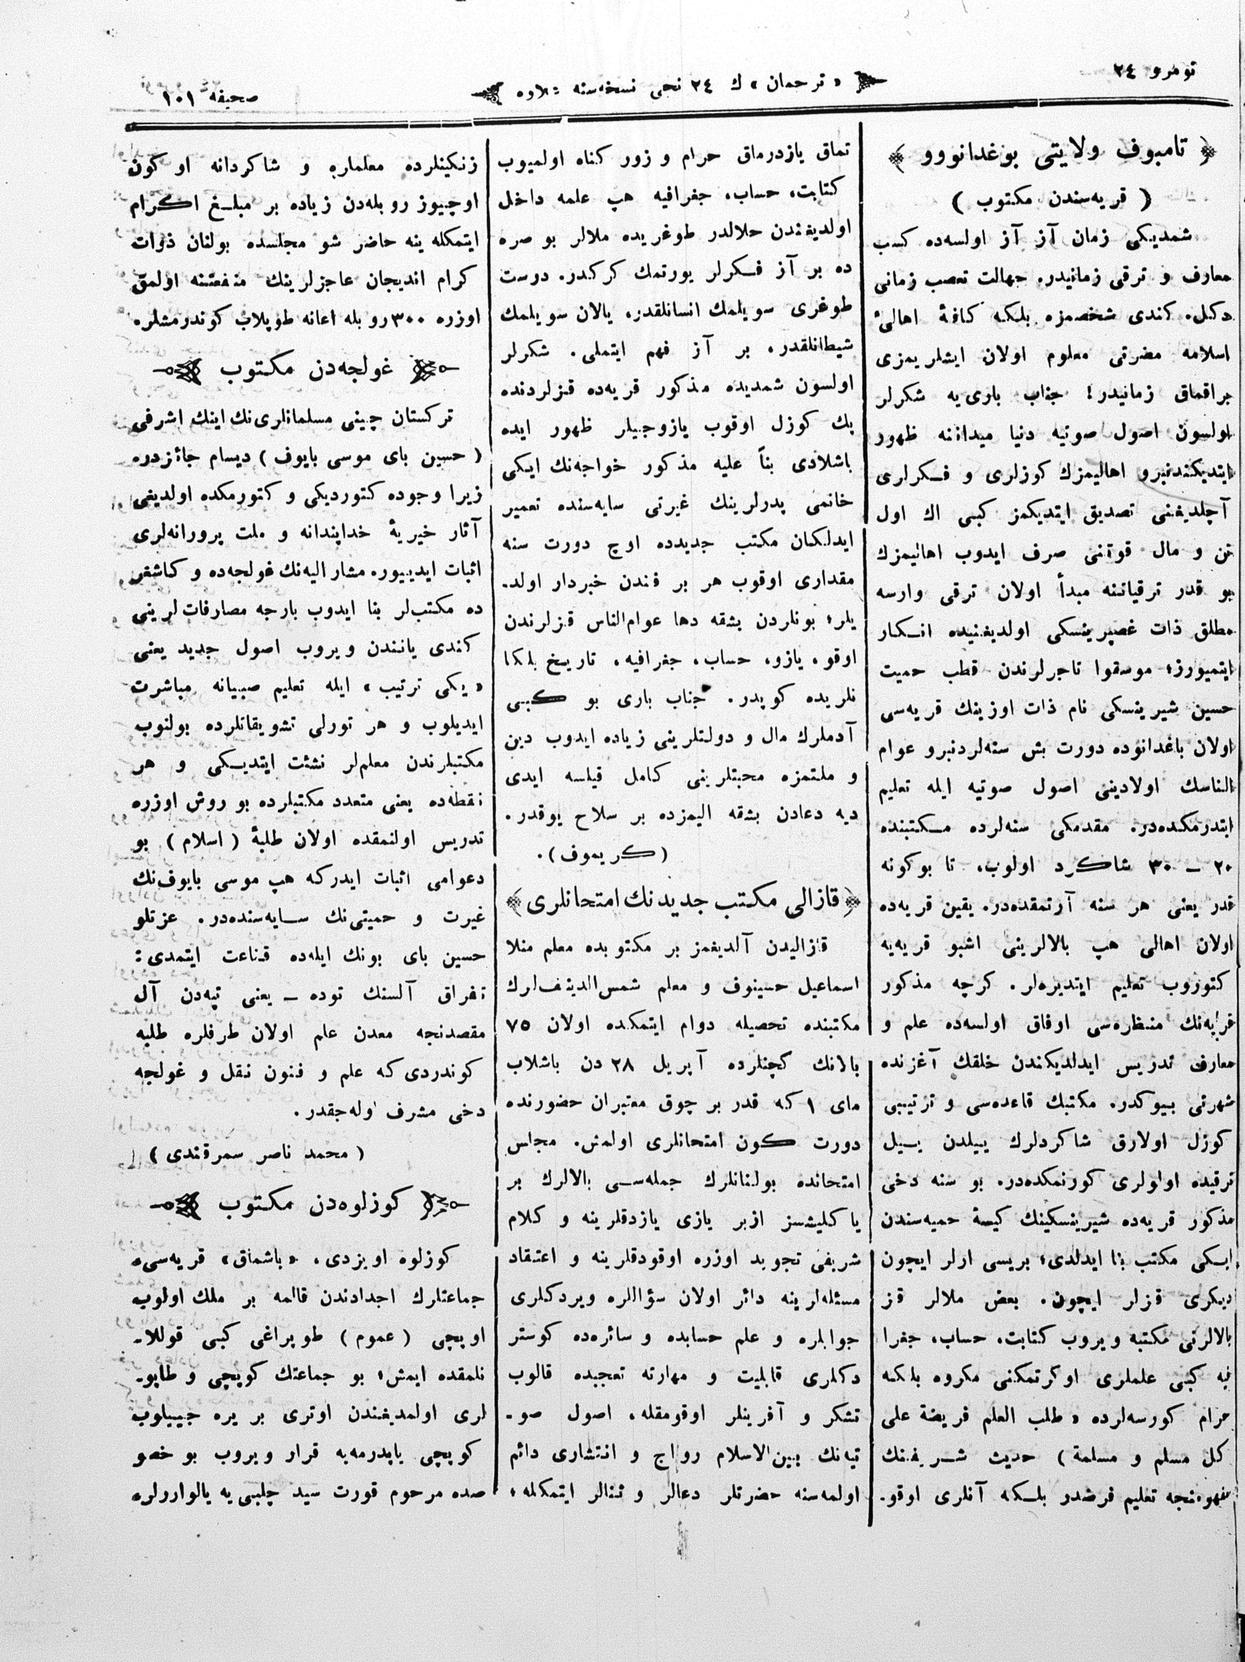 نومرو ٢٤
«ترجمان» ك ٢٤ نجی نسخه‌سنه علاوه
صحیفه ١٠١
تامبوف ولایتی بوغدانووو
(قریه‌سندن مكتوب)
شمدیكی زمان آز آز اولسه‌ده كسب
معارف و ترقی زمانیدر. جهالت تعصب زمانی
دكل. كندی شخصمزه بلكه كافهٔ اهالیٔ
اسلامه مضرتی معلوم اولان ایشلریمزی
براقماق زمانیدر! جناب باری‌یه شكرلر
اولسون اصول صوتیه دنیا میداننه ظهور
ایتدیكندنبرو اهالیمزك كوزلری و فكرلری
آچلدیغنی تصدیق ایتدیكمز كبی اك اول
تن و مال قوتنی صرف ایدوب اهالیمزك
بو قدر ترقیاتنه مبدأ اولان ترقی وارسه
مطلق ذات غصپرینسكی اولدیغنیده انكار
ایتمیورز؛ موسقوا تاجرلرندن قطب حمیت
حسین شیرینسكی نام ذات اوزینك قریه‌سی
اولان باغدانوده دورت بش سنه‌لردنبرو عوام
الناسك اولادینی اصول صوتیه ایله تعلیم
ایتدرمكده‌در. مقدمكی سنه‌لرده مكتبنده
٢٠ – ٣٠ شاكرد اولوب، تا بوكونه
قدر یعنی هر سنه آرتمقده‌در. یقین قریه‌ده
اولان اهالی هپ بالالرینی اشبو قریه‌یه
كتوروب تعلیم ایتدیره‌لر. كرچه مذكور
قریه‌نك منظره‌سی اوفاق اولسه‌ده علم و
معارف تدریس ایدلدیكندن خلقك آغزنده
شهرتی بیوكدر. مكتبك قاعده‌سی و ترتیبی
كوزل اولارق شاكردلرك ییلدن ییل
ترقیده اولولری كورنمكده‌در. بو سنه دخی
مذكور قریه‌ده شیرینسكینك كیسهٔ حمیه‌سندن
ایكی مكتب بنا ایدلدی؛ بریسی ارلر ایچون
دیكری قزلر ایچون. بعض ملالر قز
بالالرنی مكتبه ویروب كتابت، حساب، جغرا
فیه كبی علملری اوكرتمكنی مكروه بلكه
حرام كورسه‌لرده «طلب العلم فریضة علی
كل مسلم و مسلمة) حدیث شریفنك
مفهومنجه تعلیم فرضدر بلكه آنلری اوقو.
تماق یازدرماق حرام و زور كناه اولمیوب
كتابت، حساب، جغرافیه هپ علمه داخل
اولدیغندن حلالدر طوغریده ملالر بو صره
ده بر آز فكرلر یورتمك كركدر. دوست
طوغری سویلمك انسانلقدر، یالان سویلمك
شیطانلقدر، بر آز فهم ایتملی. شكرلر
اولسون شمدیده مذكور قریه‌ده قزلردنده
پك كوزل اوقوب یازوجیلر ظهور ایده
باشلادی بناً علیه مذكور خواجه‌نك ایكی
خانمی پدرلرینك غیرتی سایه‌سنده تعمیر
ایدلكان مكتب جدیدده اوچ دورت سنه
مقداری اوقوب هر بر فندن خبردار اولد.
یلر؛ بونلردن بشقه دها عوام‌الناس قزلرندن
اوقو، یازو، حساب، جغرافیه، تاریخ بلكا
نلریده كوپدر. جناب باری بو كبی
آدملرك مال و دولتلرینی زیاده ایدوب دین
و ملتمزه محبتلرینی كامل قیلسه ایدی
دیه دعادن بشقه الیمزده بر سلاح یوقدر.
(كریموف).
قازالی مكتب جدیدنك امتحانلری
قازالیدن آلدیغمز بر مكتوبده معلم منلا
اسماعیل حسینوف و معلم شمس‌الدینف‌لرك
مكتبنده تحصیله دوام ایتمكده اولان ٧٥
بالانك كچنلرده آپریل ٢٨ دن باشلاب
مای ١ كه قدر بر چوق معتبران حضورنده
دورت كون امتحانلری اولمش. مجلس
امتحانده بولنانلرك جمله‌سی بالالرك بر
یاكلیشسز ازبر یازی یازدقلرینه و كلام
شریفی تجوید اوزره اوقودقلرینه و اعتقاد
مسئله‌لرینه دائر اولان سؤاللره ویردكلری
جوابلره و علم حسابده و سائره‌ده كوستر
دكلری قابلیت و مهارته تعجبده قالوب
تشكر و آفرینلر اوقومقله، اصول صو.
تیه‌نك بین‌الاسلام رواج و انتشاری دائم
اولمه‌سنه حضرتلر دعالر و ثنالر ایتمكله؛
زنكینلرده معلملره و شاكردانه اوكون
اوچیوز روبله‌دن زیاده بر مبلغ اكرام
ایتمكله ینه حاضر شو مجلسده بولنان ذوات
كرام اندیجان عاجزلرینك منفعتنه اولمق
اوزره ٣٠٠ روبله اعانه طوپلاب كوندرمشلر.
غولجه‌دن مكتوب
تركستان چینی مسلمانلری‌نك اینك اشرفی
(حسین بای موسی بایوف) دیسام جائزدر.
زیرا وجوده كتوردیكی و كتورمكده اولدیغی
آثار خیریهٔ خداپندانه و ملت پرورانه‌لری
اثبات ایدییور. مشار الیه‌نك غولجه‌ده و كاشغر
ده مكتب‌لر بنا ایدوب بارجه مصارفات‌لرینی
كندی یانندن ویروب اصول جدید یعنی
«یكی ترتیب» ایله تعلیم صبیانه مباشرت
ایدیلوب و هر تورلی تشویقاتلرده بولنوب
مكتبلرندن معلم‌لر نشئت ایتدیكی و هر
نقطه‌ده یعنی متعدد مكتبلرده بو روش اوزره
تدریس اولنمقده اولان طلبهٔ (اسلام) بو
دعوامی اثبات ایدركه هپ موسی بایوف‌نك
غیرت و حمیتی‌نك سایه‌سنده‌در. عزتلو
حسین بای بونك ایله‌ده قناعت ایتمدی:
تفراق آلسنك توده – یعنی تپه‌دن آل
مقصدنجه معدن علم اولان طرفلره طلبه
كوندردی‌كه علم و فنون نقل و غولجه
دخی مشرف اوله‌جقدر.
(محمد ناصر سمرقندی)
كوزلوه‌دن مكتوب
كوزلوه اویزدی، «باشماق» قریه‌سی
جماعتلرك اجدادندن قالمه بر ملك اولوب
اویچی (عموم) طوپراغی كبی قوللا.
نلمقده ایمش؛ بو جماعتك كوپچی و طابو.
لری اولمدیغندن اوتری بر یره جییلوب
كوپچی یاپدرمه‌یه قرار ویروب بو خصو
صده مرحوم قورت سید چلبی‌یه یالوارولر.